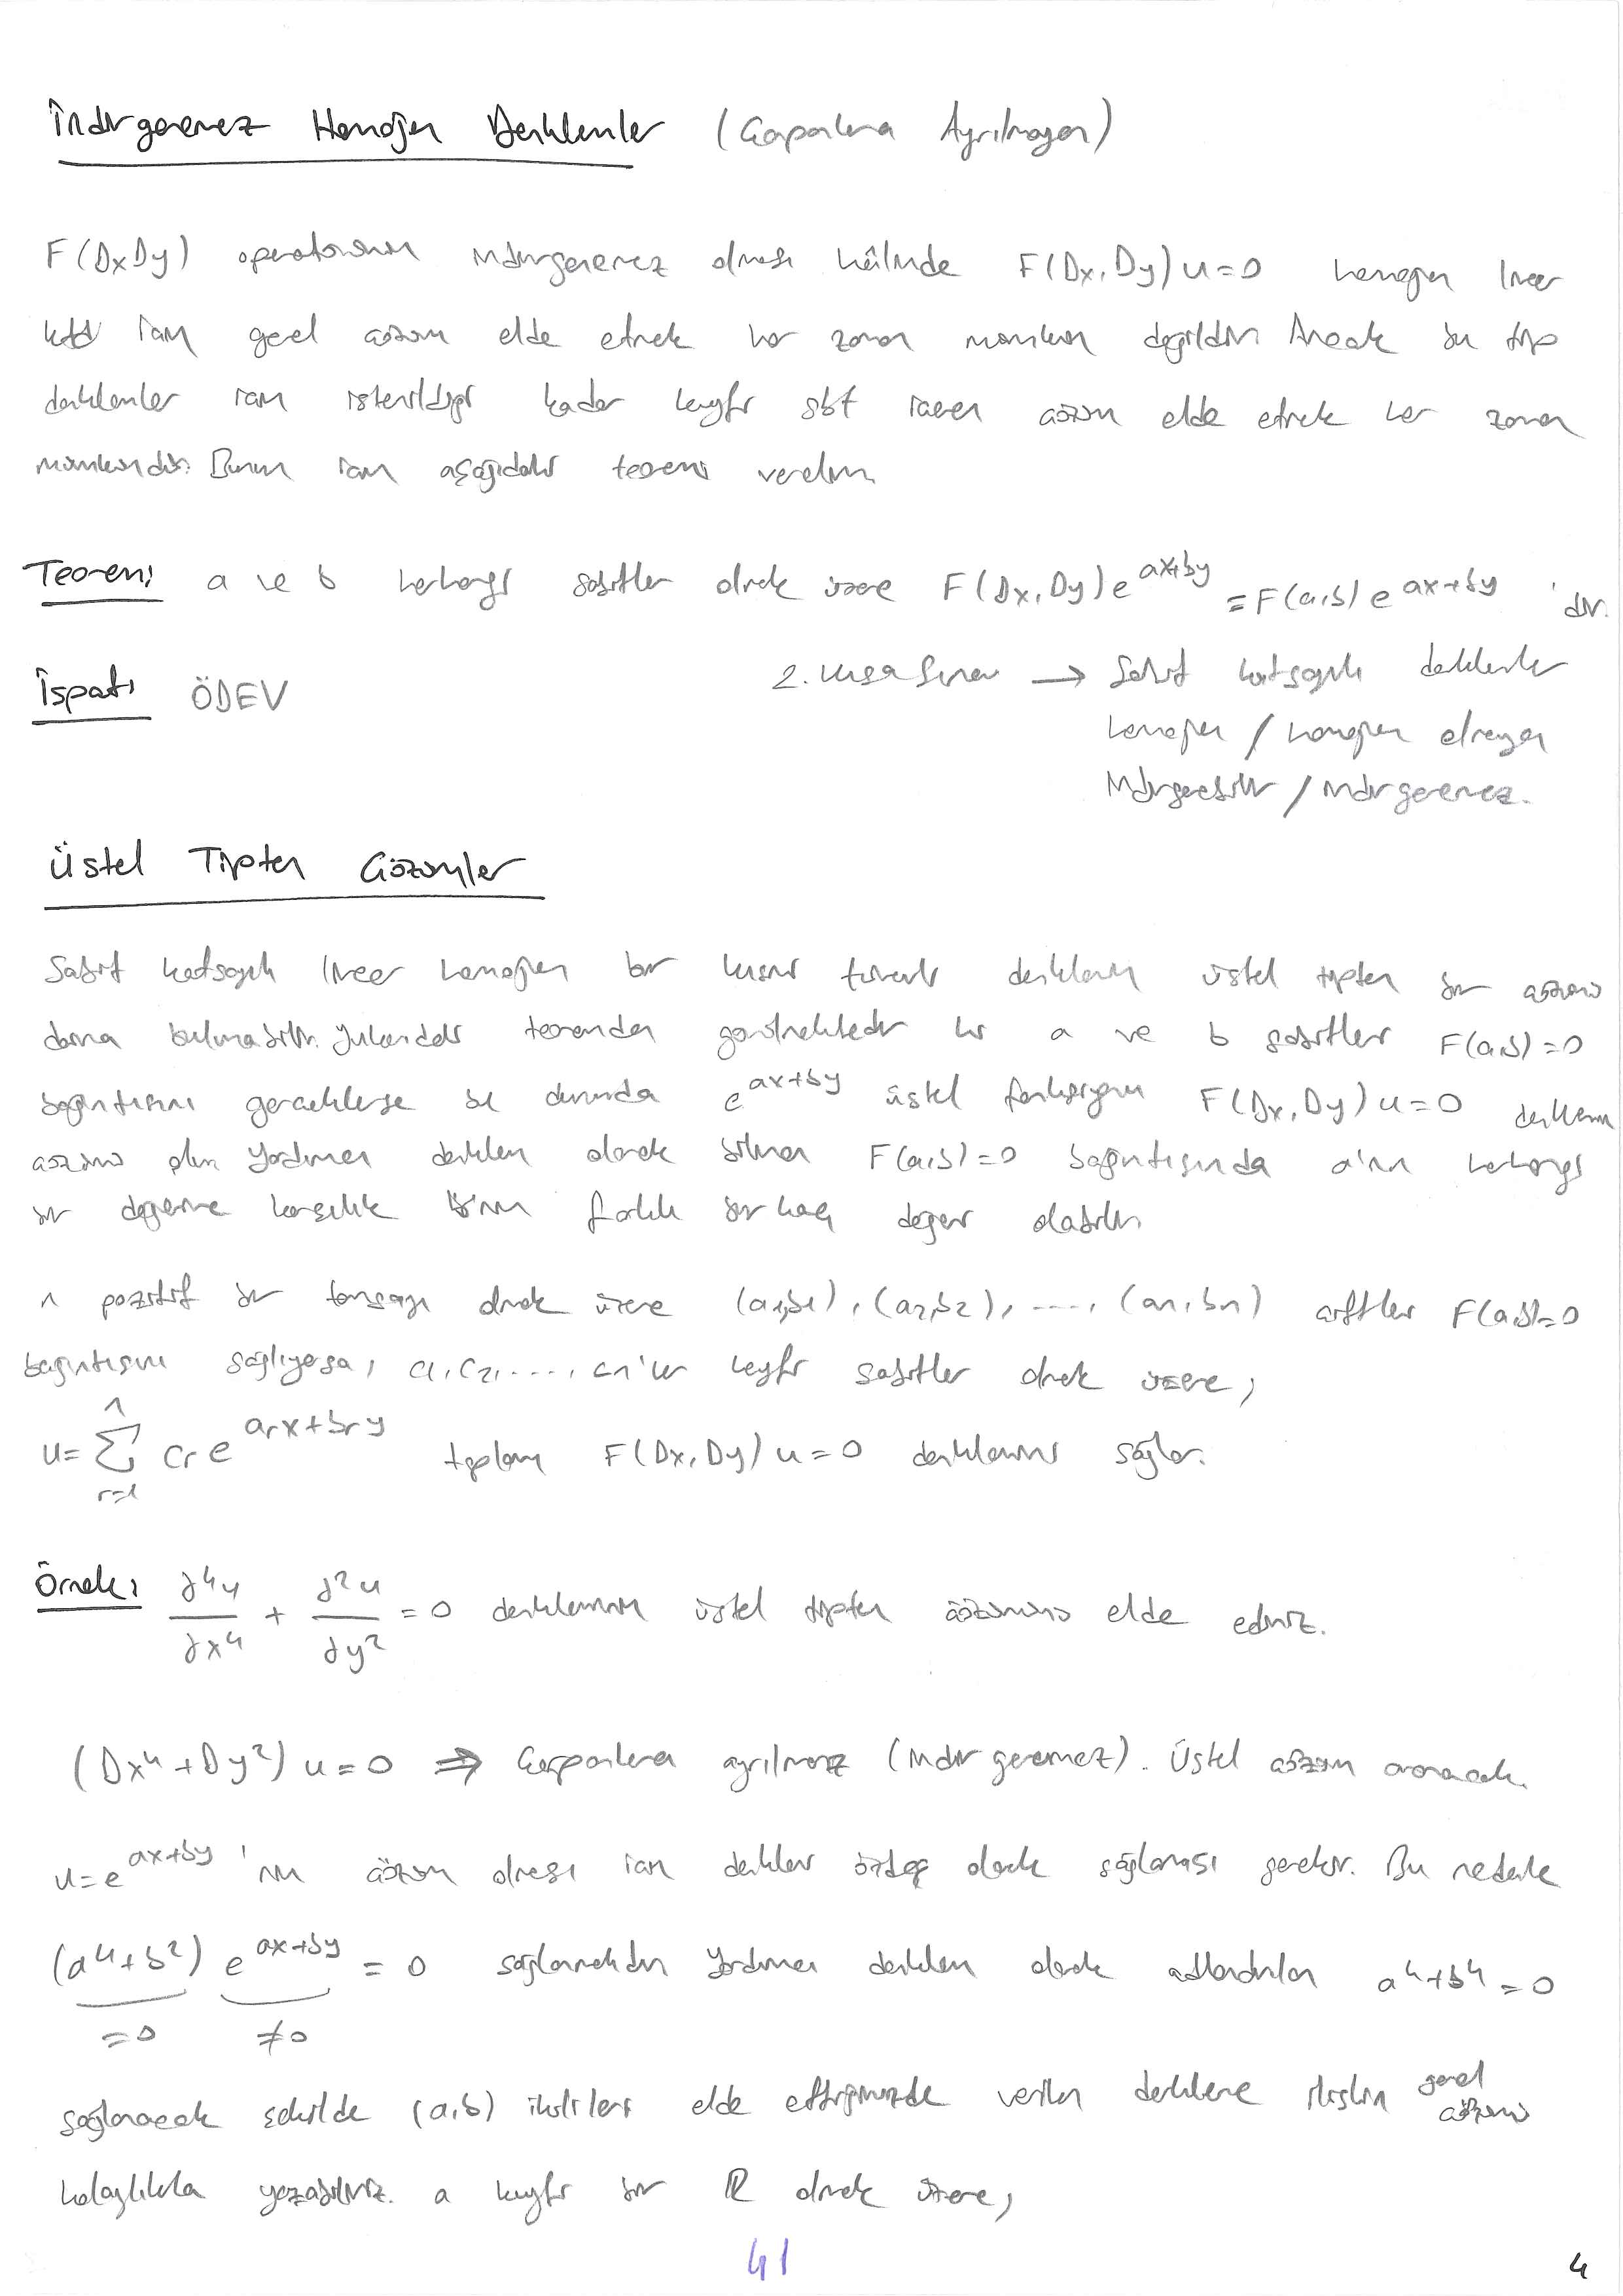 İndirgenemez Homojen Denklemler (Çarpanlarına Ayrılmayan)
F(DxDy) operatörünün indirgenemez olması hâlinde F(Dx,Dy)u=0 homojen lineer
kdd için genel çözüm elde etmek her zaman mümkün değildir. Ancak bu tip
denklemler için istenildiği kadar keyfi sbt içeren çözüm elde etmek her zaman
mümkündür. Bunun için aşağıdaki teoremi verelim.
Teorem: a ve b herhangi sabitler olmak üzere F(Dx,Dy)e^{ax+by} = F(a,b) e^{ax+by} 'dir.
İspat: ÖDEV
2. Kısa Sınav → Sabit katsayılı denklemler
homojen / homojen olmayan
indirgenebilir / indirgenemez.
Üstel Tipten Çözümler
Sabit katsayılı lineer homojen bir kısmi türevli denklemin üstel tipten bir çözümü
daima bulunabilir. Yukarıdaki teoremden görülmektedir ki a ve b sabitler F(a,b)=0
bağıntısını gerçeklerse bu durumda e^{ax+by} üstel fonksiyonu F(Dx,Dy)u=0 denklemin
çözümü olur. Yardımcı denklem olarak bilinen F(a,b)=0 bağıntısında a'nın herhangi
bir değerine karşılık b'nin farklı bir kaç değeri olabilir.
n pozitif bir tamsayı olmak üzere (a1,b1), (a2,b2), ...., (an,bn) çiftler F(a,b)=0
bağıntısını sağlıyorsa, c1, c2, ...., cn'ler keyfi sabitler olmak üzere;
u= \sum_{r=1}^{n} cr e^{arx+bry} toplamı F(Dx,Dy)u=0 denklemini sağlar.
Örnek: ∂⁴u/∂x⁴ + ∂²u/∂y² = 0 denkleminin üstel tipten çözümünü elde ediniz.
(Dx⁴+Dy²)u=0 ⇒ Çarpanlarına ayrılmaz (indirgenemez). Üstel çözüm aranacak.
u=e^{ax+by} 'nin çözüm olması için denklem özdeş olarak sağlanması gerekir. Bu nedenle
(a⁴+b²) e^{ax+by} = 0 sağlanmalıdır. Yardımcı denklem olarak adlandırılan a⁴+b⁴=0
=0 ≠0
sağlanacak şekilde (a,b) ikilileri elde ettiğimizde verilen denkleme ilişkin genel çözümü
kolaylıkla yazabiliriz. a keyfi bir ℝ olmak üzere;
41
4